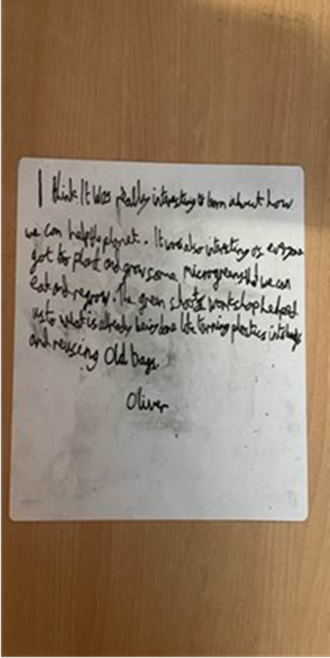 I think It was really interesting to learn about how
we can help the planet. It was also intersting as everyone
got to plant and grow some microgreens that we can
Eat and regrow. The green shoots workshop helped
us to what is already being done like turning plastics into
and reusing Old bags
Oliver